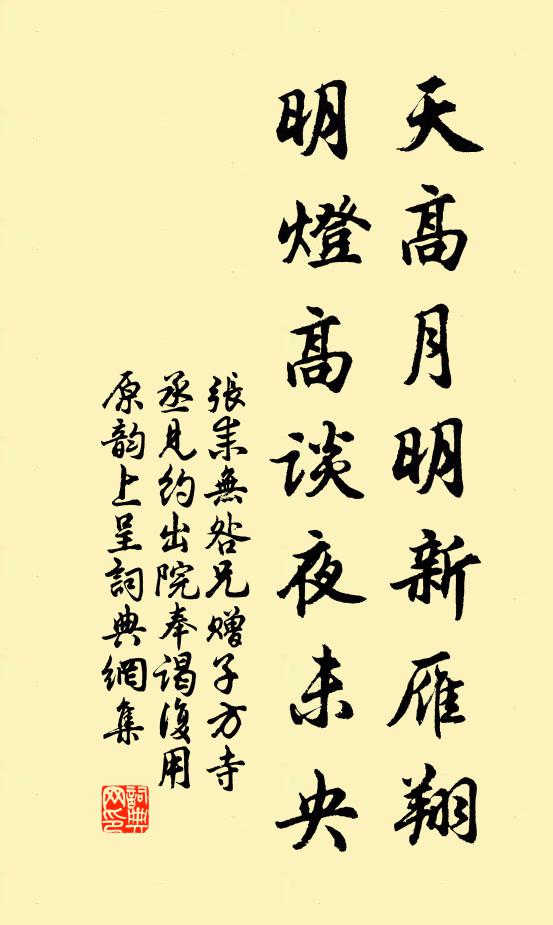 天高月明新雁翔
明燈高談夜未央
張耒無咎兄赠子方寺
丞見約出院奉谒復用
原韵上呈詞典網集
詞典
网印